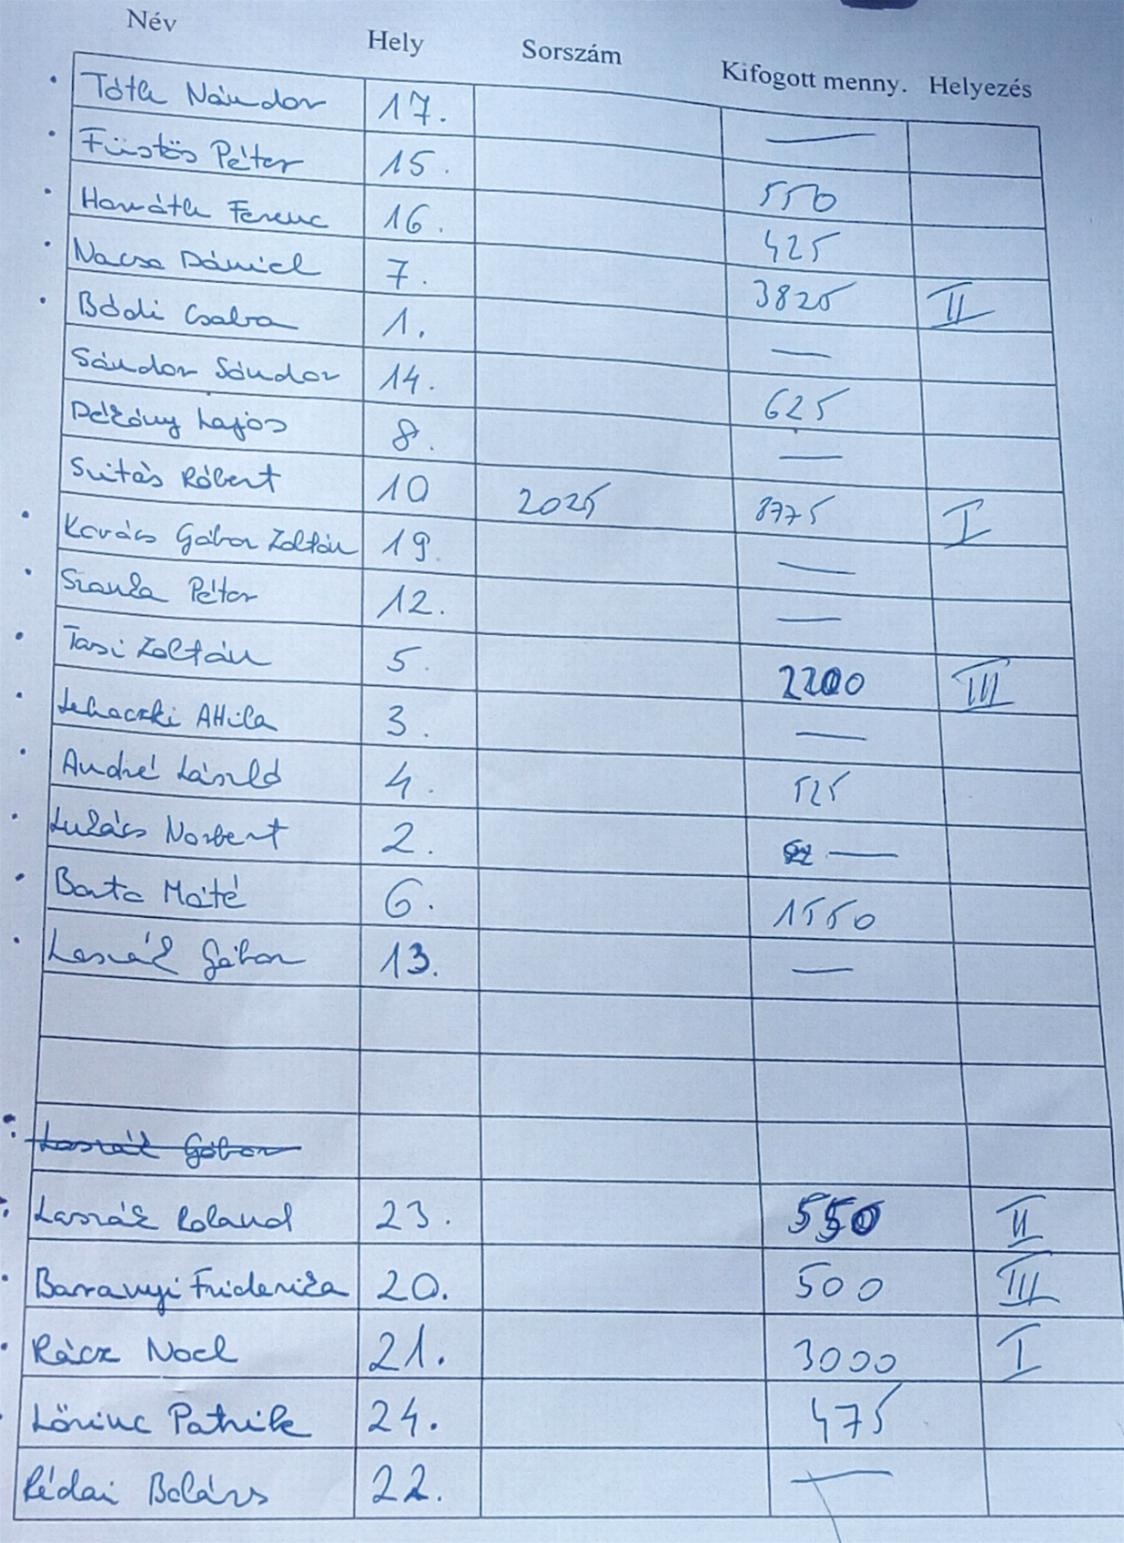 Név Hely Sorszám Kifogott menny. Helyezés
Tóth Nándor 17. —
Füstös Péter 15. 550
Horváth Ferenc 16. 425
Nacsa Dániel 7. 3825 II
Bódi Csaba 1. —
Sándor Sándor 14. 625
Lajos 8. —
Suitás Róbert 10 2025 8775 I
Kovács Gábor Zoltán 19. —
Péter 12. —
Tasi Zoltán 5. 2200 III
Lehoczki Attila 3. —
André László 4. 525
Lukács Norbert 2. —
Barta Máté 6. 1550
Laszák Gábor 13. —
Laszák Gábor
Laszák Roland 23. 550 II
Baranyi Friderika 20. 500 III
Rácz Noel 21. 3000 I
Lőrinc Patrik 24. 475
Rédai Balázs 22. —